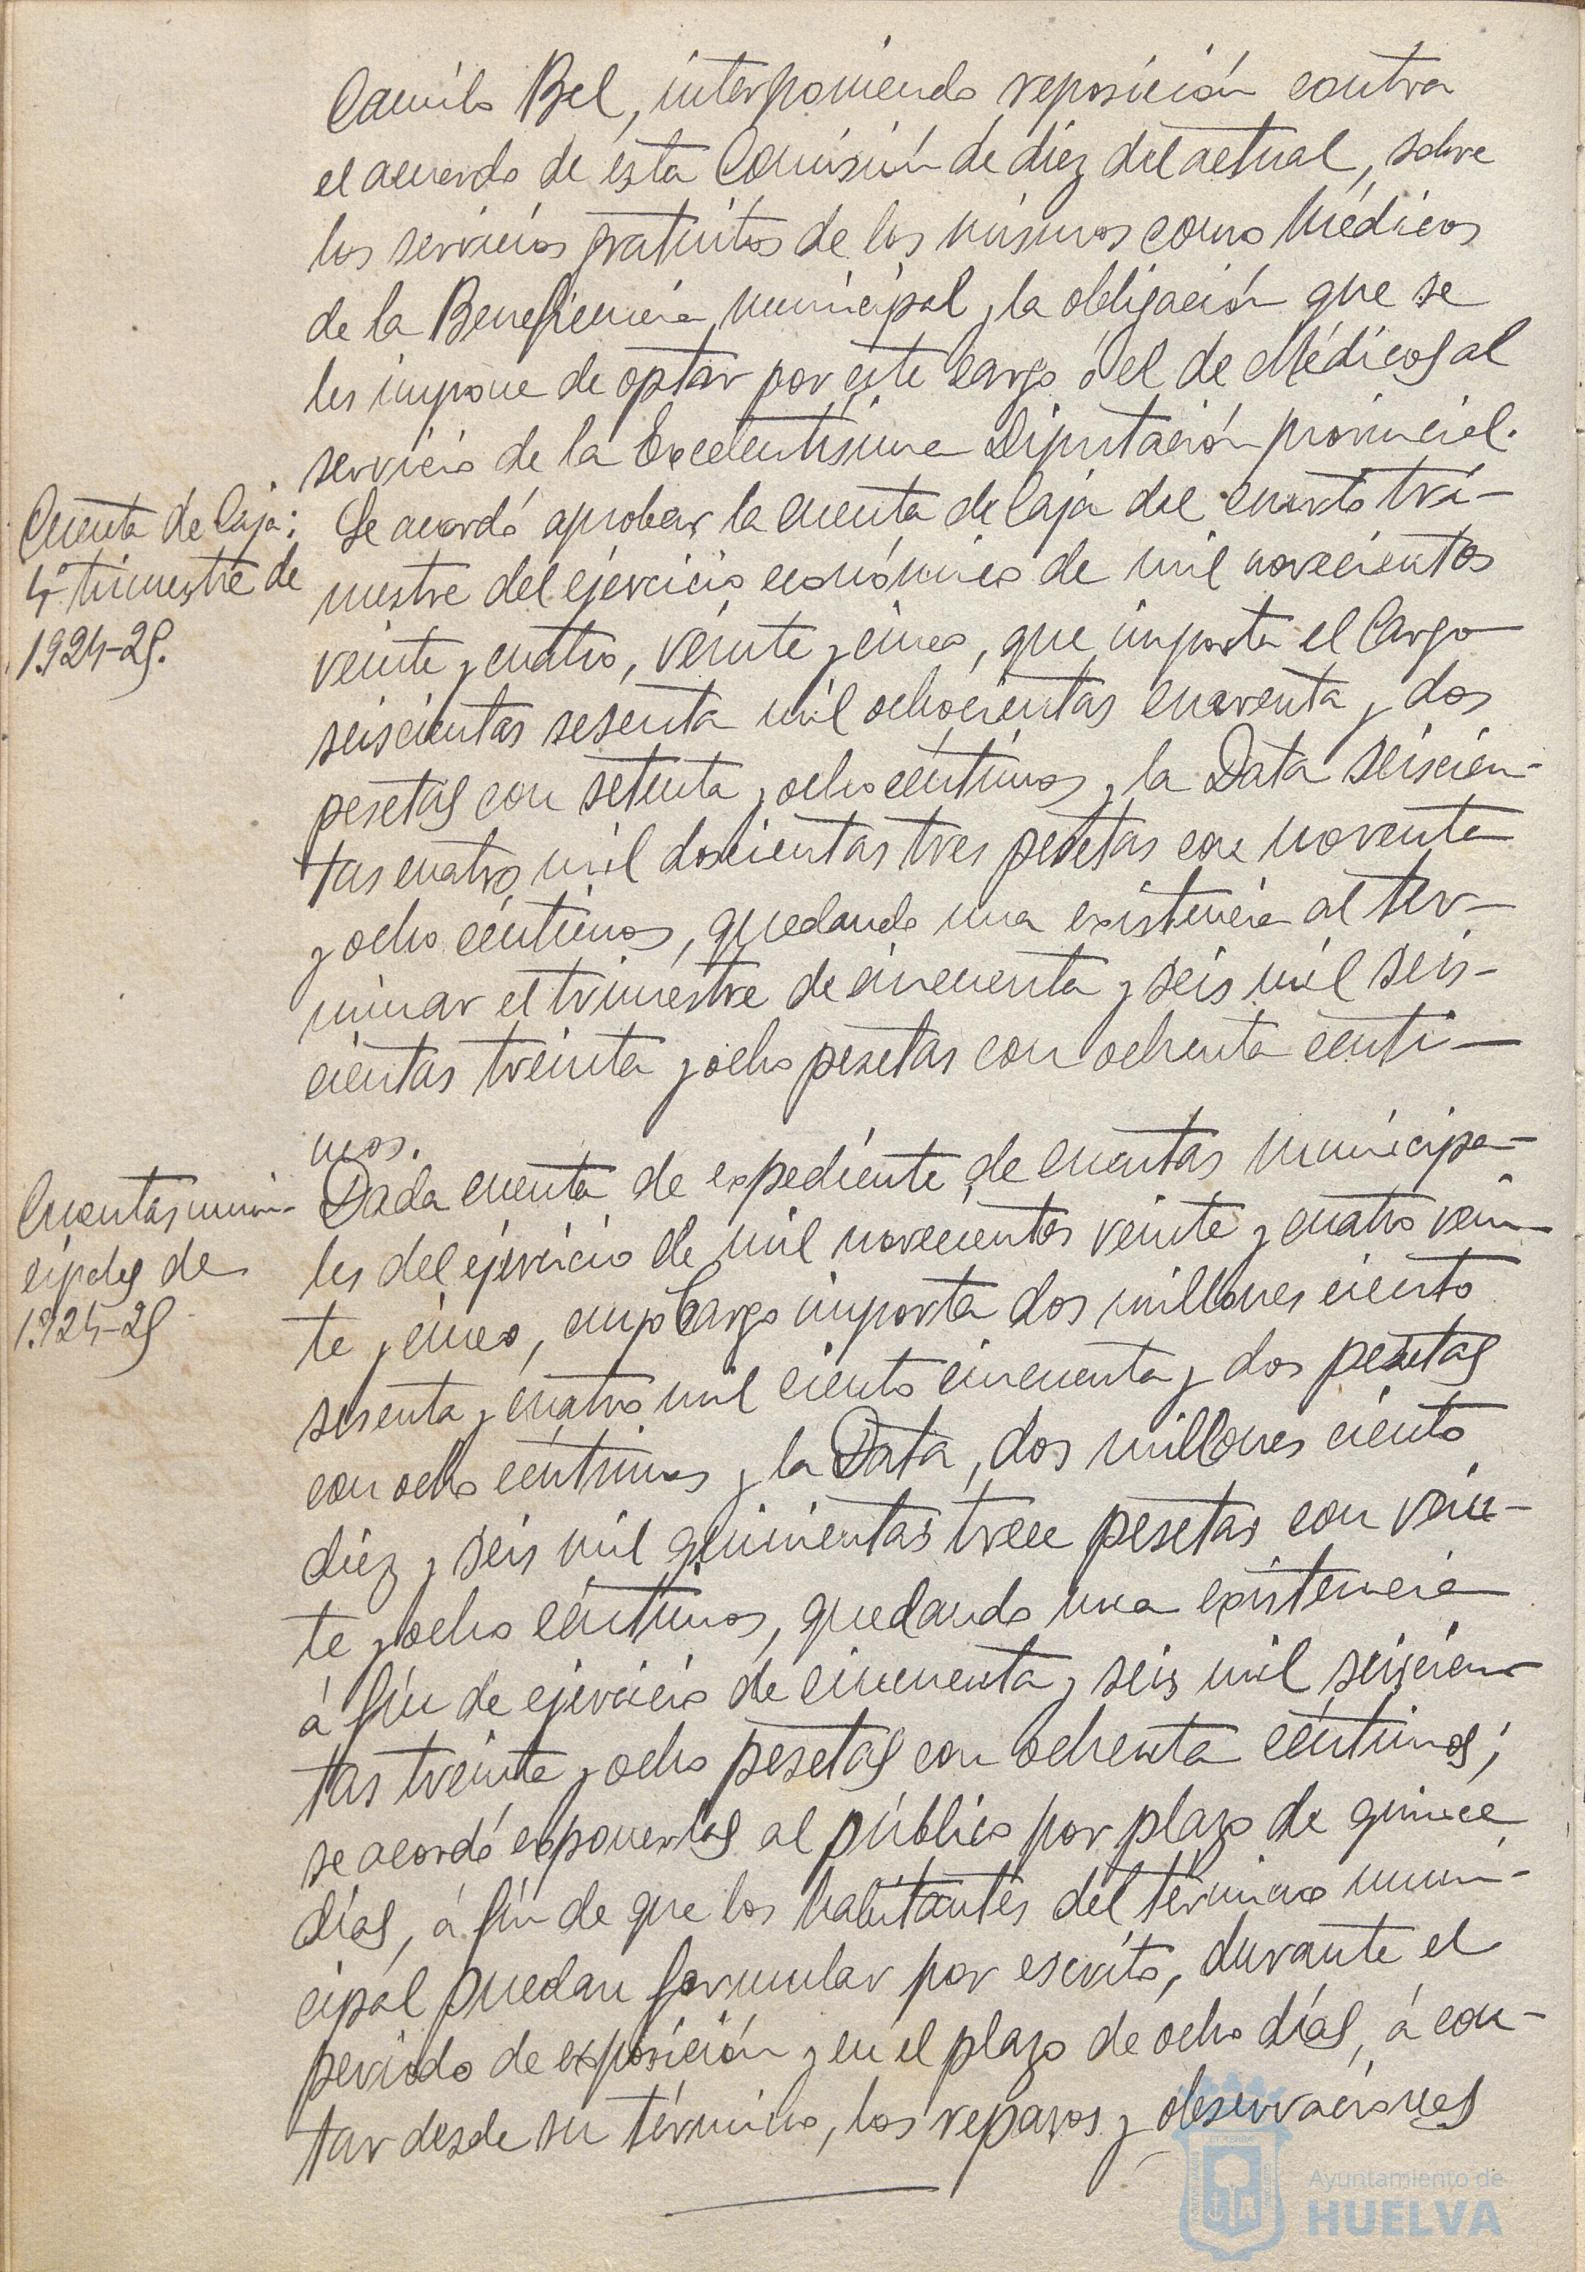 Camilo Bel, interponiendo reposición contra
el acuerdo de ésta Comisión de diez del actual, sobre
los servicios gratuitos de los mismos como Médicos
de la Beneficencia municipal y la obligación que se
les impone de optar por éste cargo ó el de Médicos al
servicio de la Excelentísima Diputación provincial.
Cuenta de Caja:
4º trimestre de
1.924-25.
Se acordó aprobar la cuenta de Caja del cuarto tri-
mestre del ejercicio económico de mil novecientos
veinte y cuatro, veinte y cinco, que importa el Cargo
seiscientas sesenta mil ochocientas cuarenta y dos
pesetas con setenta y ocho céntimos y la Data seiscien-
tas cuatro mil doscientas tres pesetas con noventa
y ocho céntimos, quedando una existencia al ter-
minar el trimestre de cincuenta y seis mil seis-
cientas treinta y ocho pesetas con ochenta cénti-
mos.
Cuentas muni-
cipales de
1.924-25
Dada cuenta de expediente de cuentas municipa-
les del ejercicio de mil novecientos veinte y cuatro vein-
te y cinco, cuyo Cargo importa dos millones ciento
sesenta y cuatro mil ciento cincuenta y dos pesetas
con ocho céntimos y la Data, dos millones ciento
diez y seis mil quinientas trece pesetas con vein-
te y ocho céntimos, quedando una existencia
á fin de ejercicio de cincuenta y seis mil seiscien-
tas treinta y ocho pesetas con ochenta céntimos;
se acordó exponerlas al público por plazo de quince
días, á fin de que los habitantes del término muni-
cipal puedan formular por escrito, durante el
periodo de exposición y en el plazo de ocho días, á con-
tar desde su término, los reparos y observaciones
Ayuntamiento de
HUELVA